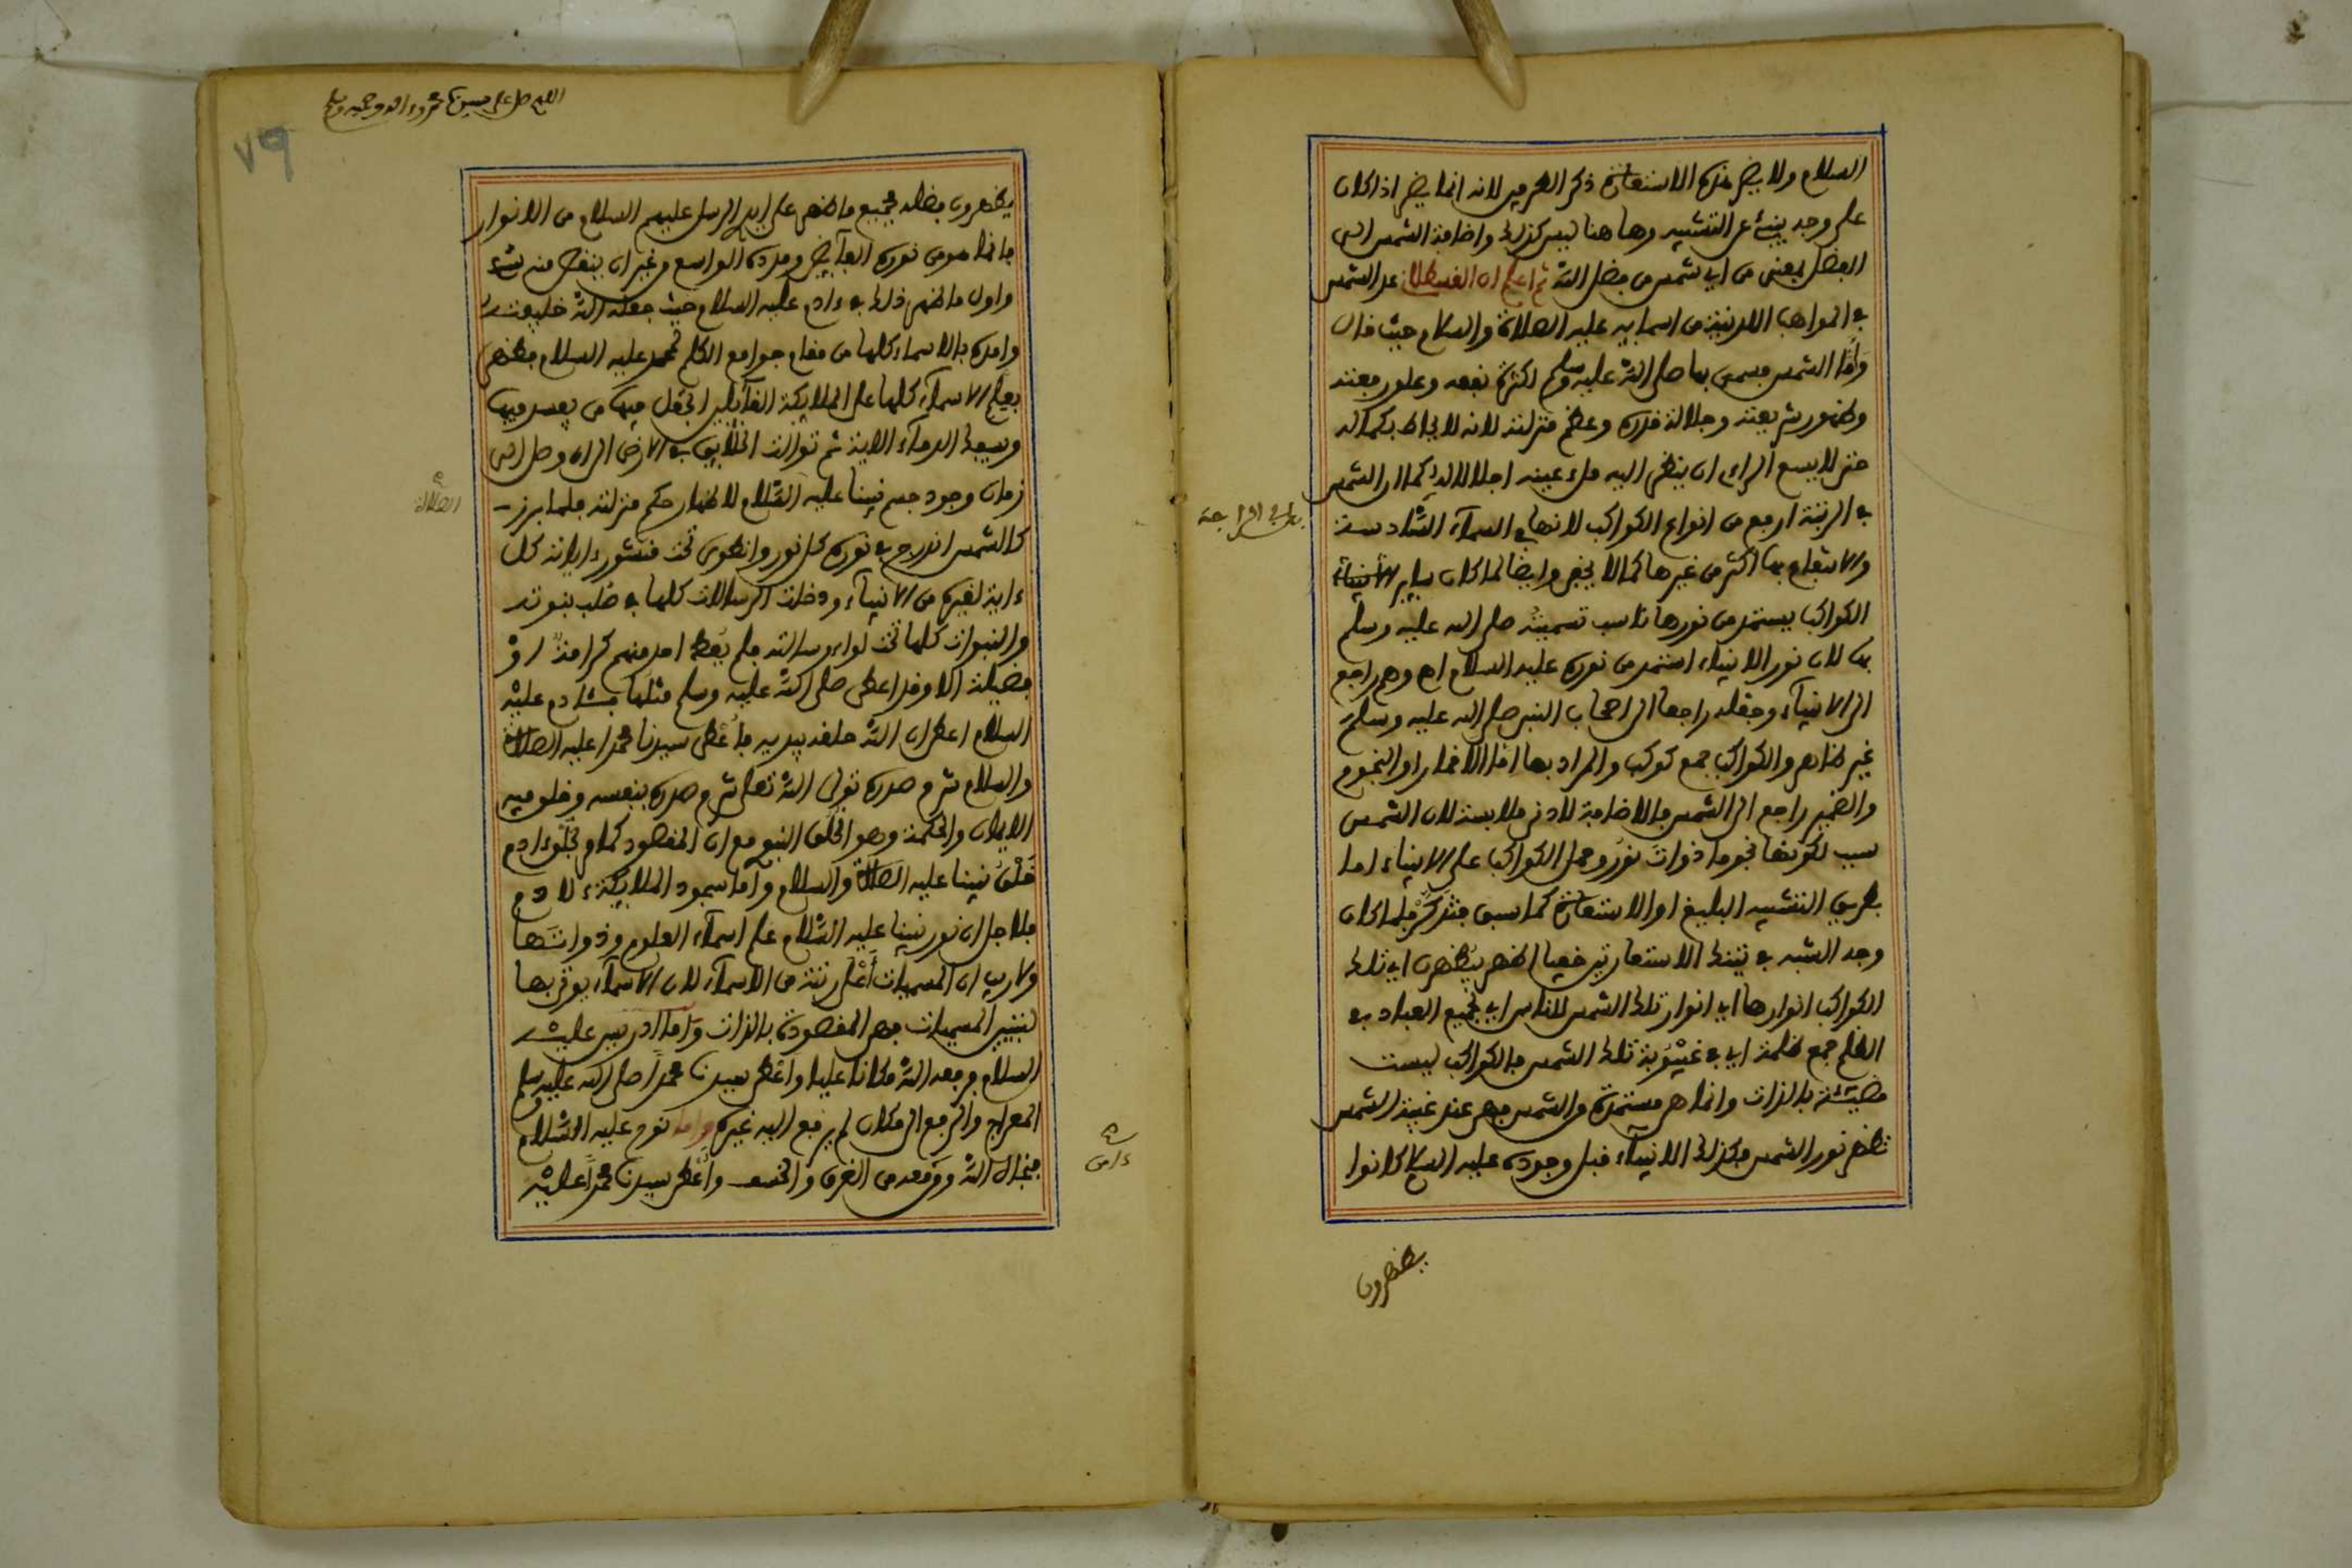 السلام ولا يضر هذه الاستعارة ذكر الطرفين لانه انما يضر اذا كان
على وجه ينبئ عن التشبيه وها هنا ليس كذلك واضافة الشمس الى
الفضل بمعنى من اي شمس من فضل الله ثم اعلم ان القسطلاني عد الشمس
في المواهب اللدنية من اسمايه عليه الصلاة والسلام حيث قال
وأما الشمس فسمي بها صلى الله عليه وسلم لكثرة نفعه وعلو رفعته
وظهور شريعته وجلالة قدره وعظم منزلته لانه لا يحاط بكماله
حتى لا يسع الراي ان ينظر اليه ملء عينه اجلالا له كما ان الشمس
في الرتبة ارفع من انواع الكواكب لانها في السمآء السادسة
والانتفاع بها اكثر من غيرها كما لا يخفى وايضا لما كان ساير الأنبياء
الكواكب يستمد من نورها ناسب تسميته صلى الله عليه وسلم
بها لان نور الانبياء استمد من نوره عليه السلام اه وهم راجع
الى الانبيآء وجعله راجعا الى اصحاب النبي صلى الله عليه وسلم
غير ظاهر والكواكب جمع كوكب والمراد بها اما الاقمار او النجوم
والضمير راجع الى الشمس فالاضافة لادنى ملابسة لان الشمس
سبب لكونها نجوما ذوات نور وحمل الكواكب على الانبياء اما
بطريق التشبيه البليغ او الاستعارة كما سبق فتذكر فلما كان
وجه الشبه في تينك الاستعارتين خفيا اظهر يظهرن اي تلك
الكواكب انوارها اي انوار تلك الشمس للناس اي لجميع العباد في
الظلم جمع ظلمة اي في غيبوبة تلك الشمس فالكواكب ليست
مضيئة بالذات وانما هي مستمدة من الشمس فهي عند غيبة الشمس
تظهر نور الشمس فكذلك الانبيآء قبل وجوده عليه السلام كانوا
يظهرون
اللهم صل على سيدنا محمد وءاله وصحبه وسلم
٧٩
يظهرون فضله فجميع ما ظهر على ايدي الرسل عليهم السلام من الانوار
فانما هو من نوره الفآيض ومدده الواسع من غير ان ينقص منه شيء
واول ما ظهر ذلك في ءادم عليه السلام حيث جعله الله خليفته
وامده بالاسماء كلها من مقام جوامع الكلم لمحمد عليه السلام فظهر
بعلم الاسمآء كلها على الملايكة القآيلين اتجعل فيها من يفسد فيها
ويسفك الدمآء الاية ثم توالت الخلايق في الارض الى ان وصل الى
زمان وجود جسم نبينا عليه السلام لاظهار حكم منزلته فلما برز
الصلاة
كالشمس اندرج في نوره كل نور وانطوى تحت منشور ءاياته كل
ءاية لغيره من الانبيآء ودخلت الرسالات كلها في صلب نبوته
والنبوات كلها تحت لواء رسالته فلم يعط احد منهم كرامة او
فضيلة الا وقد اعطي صلى الله عليه وسلم مثلها فـئادم عليه
السلام اعطي ان الله خلقه بيديه فأعطي سيدنا محمدا عليه الصلاة
والسلام شرح صدره تولى الله تعلى شرح صدره بنفسه وخلق فيه
الايمان والحكمة وهو الخلق النبوي مع ان المقصود كما في خلق ءادم
خلق نبينا عليه الصلاة والسلام وأما سجود الملايكة لءادم
فلاجل ان نور نبينا عليه السلام علم اسمآء العلوم وذواتها
ولا ريب ان المسميات أعلى رتبة من الاسمآء لان الاسمآء يوتى بها
لتبيين المسميات فهي المقصودة بالذات وأما ادريس عليه
السلام فرفعه الله مكانا عليا واعطي سيدنا محمدا صلى الله عليه وسلم
المعراج والرفع الى مكان لم يرفع اليه غيره واما نوح عليه السلام
فنجاه الله ومن معه من الغرق والخسف وأعطي سيدنا محمدا عليه
ءامن